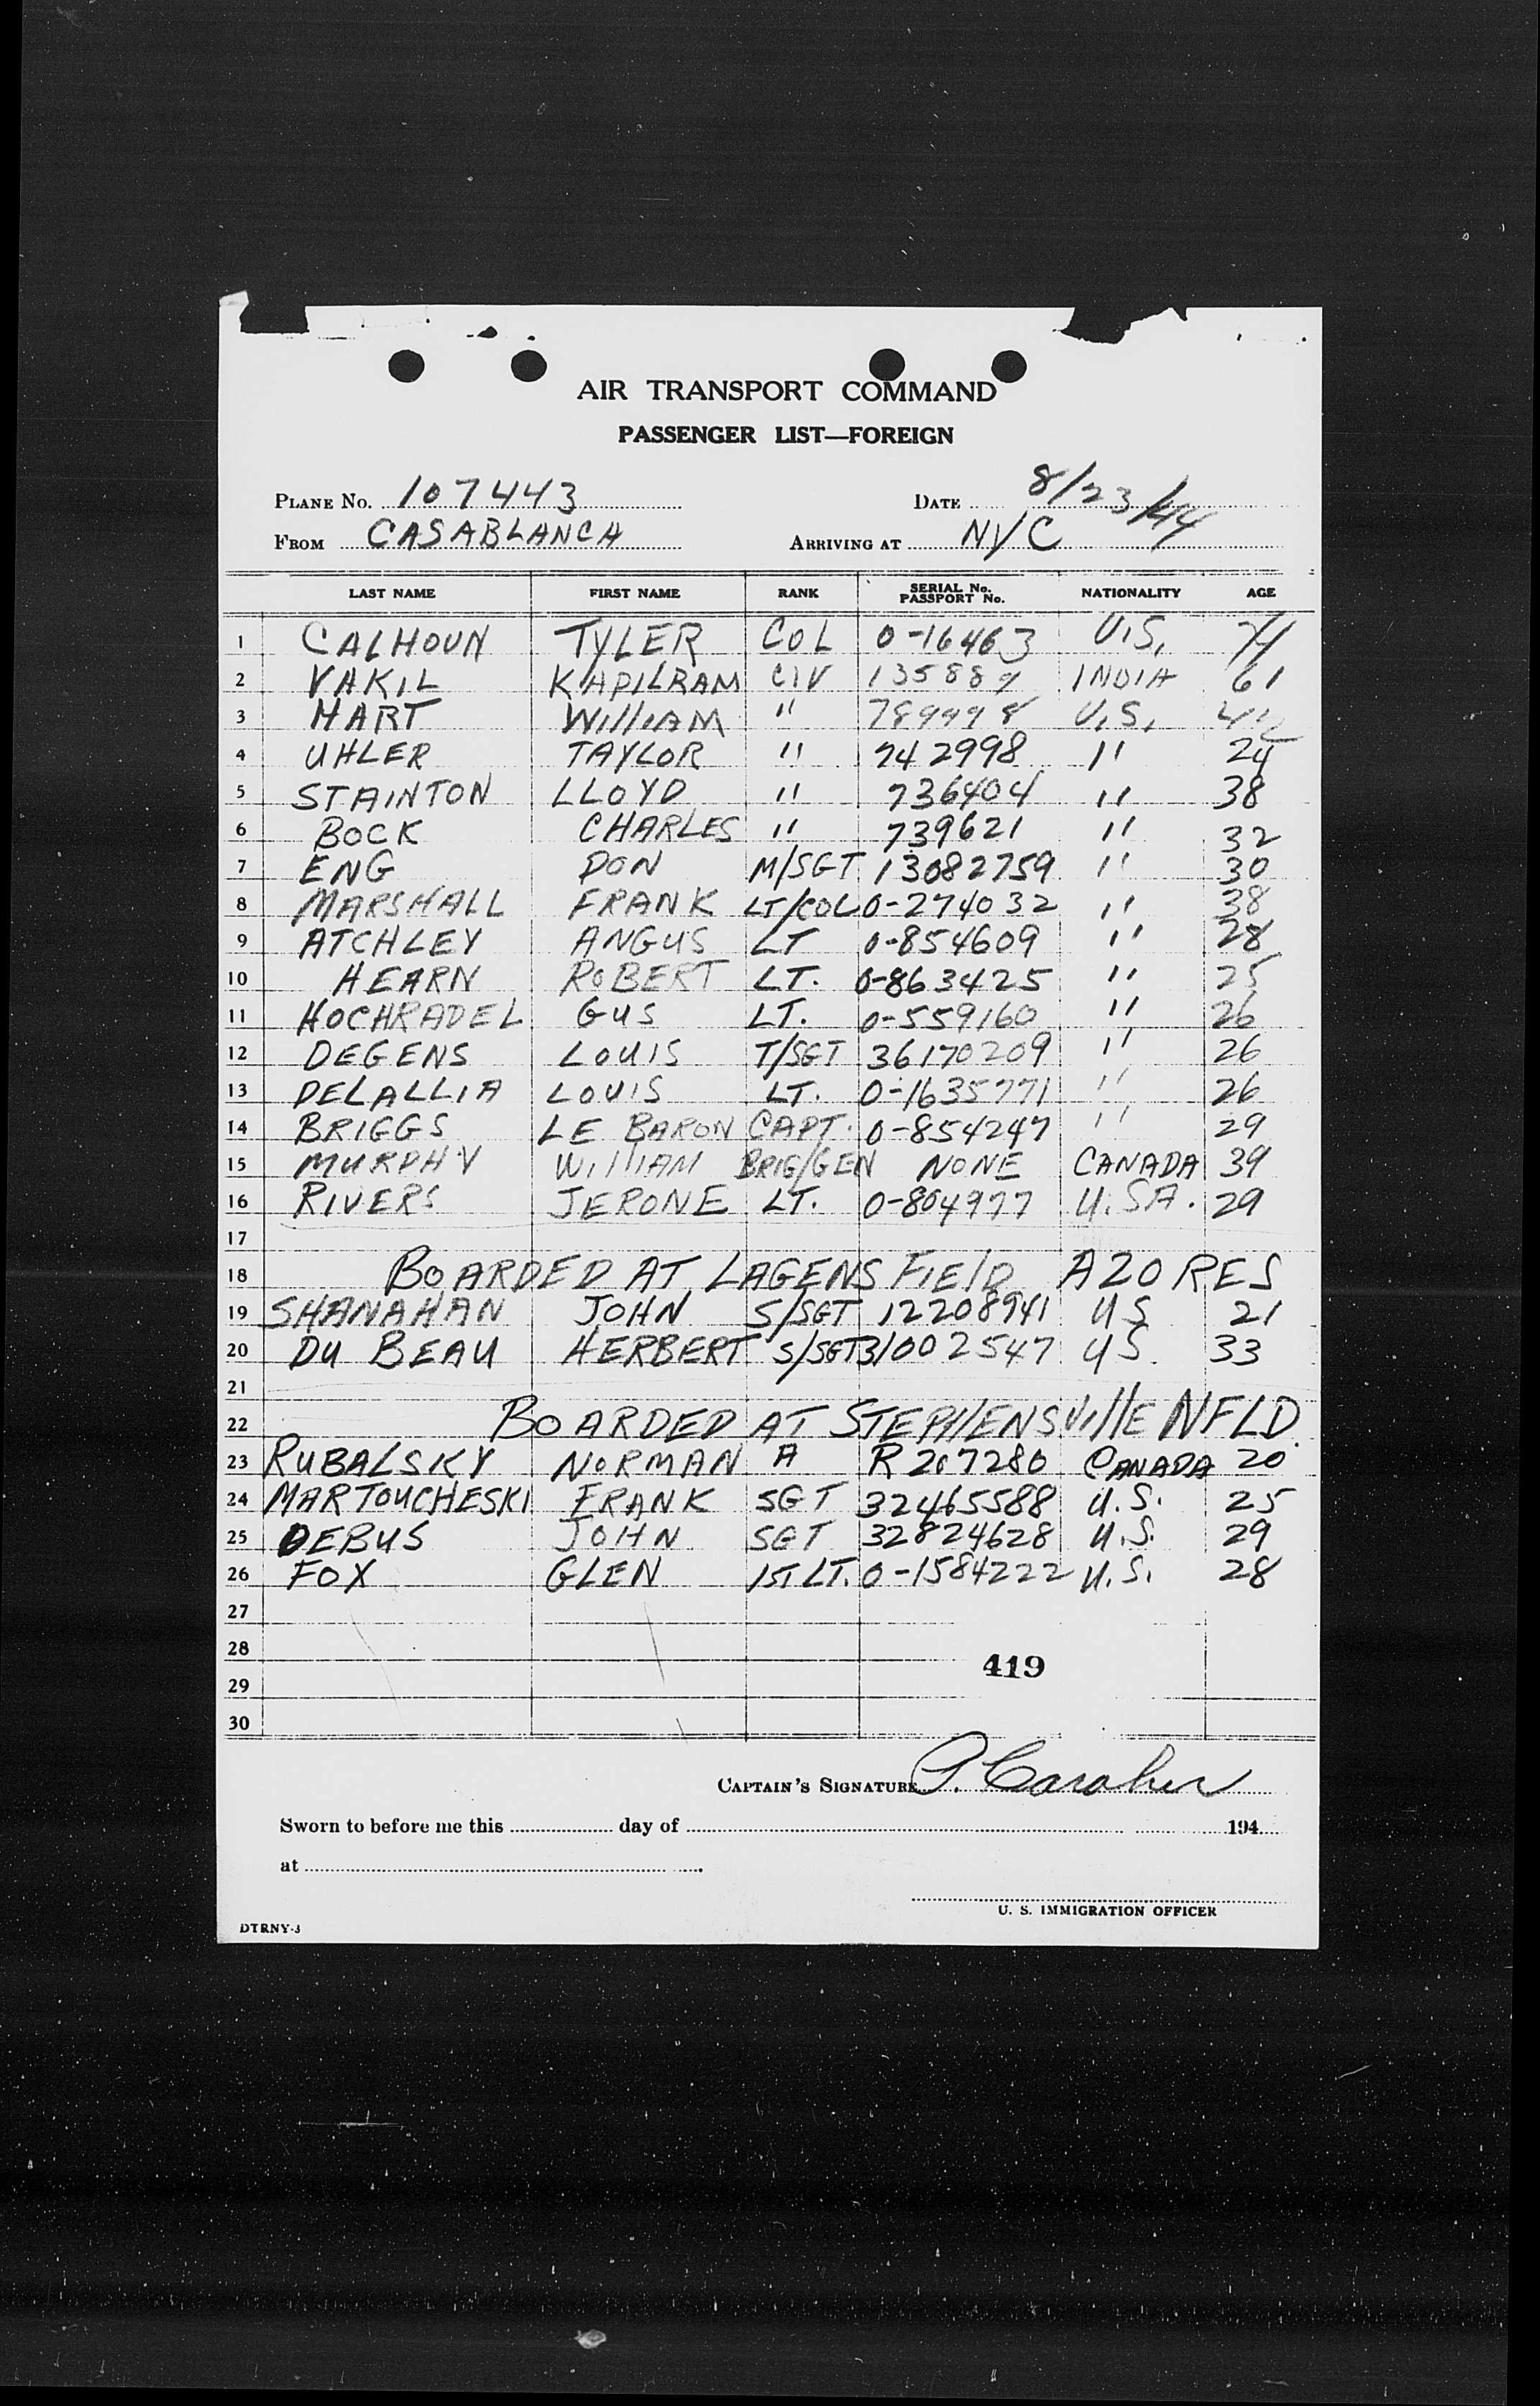 AIR TRANSPORT COMMAND
PASSENGER LIST—FOREIGN
PLANE No. 107443 DATE 8/23/44
FROM CASABLANCA ARRIVING AT NYC
LAST NAME FIRST NAME RANK SERIAL No. PASSPORT No. NATIONALITY AGE
1 CALHOUN TYLER COL 0-16463 U.S.
2 VAKIL KAPILRAM CIV INDIA 61
3 HART WilliAM " U.S.
4 UHLER TAYLOR " 742998 " 24
5 STAINTON LLOYD " 736404 " 38
6 BOCK CHARLES " 739621 " 32
7 ENG DON M/SGT 13082759 " 30
8 MARSHALL FRANK LT/COL 0-274032 " 38
9 ATCHLEY ANGUS LT 0-854609 " 28
10 HEARN ROBERT LT. 0-863425 " 25
11 HOCHRADEL GUS LT. 0-559160 " 26
12 DEGENS LOUIS T/SGT 36170209 " 26
13 DELALLIA LOUIS LT. 0-1635771 " 26
14 BRIGGS LE BARON CAPT. 0-854247 " 29
15 MURPHY WilliAM BRIG/GEN NONE CANADA 39
16 RIVERS JERONE LT. 0-804977 U.SA. 29
17
18 BOARDED AT LAGENS FIElD AZORES
19 SHANAHAN JOHN S/SGT 12208941 US 21
20 DU BEAU HERBERT S/SGT 31002547 US. 33
21
22 BOARDED AT STEPHENSVillE NFLD.
23 RUBALSKY NORMAN A R207280 CANADA 20
24 MARTOUCHESKI FRANK SGT 32465588 U.S. 25
25 DEBUS JOHN SGT 32824628 U.S. 29
26 FOX GLEN 1ST LT. 0-1584222 U.S. 28
27
28
419
29
30
CAPTAIN'S SIGNATURE P. Caraher
Sworn to before me this day of 194
at
U. S. IMMIGRATION OFFICER
DTRNY-3